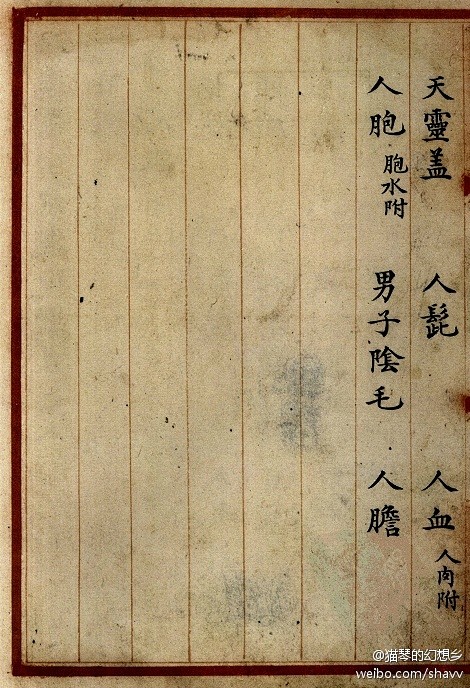 天靈盖 人髭 人血 人肉附
人胞 胞水附 男子陰毛 人膽
@猫琴的幻想乡
weibo.com/shavv